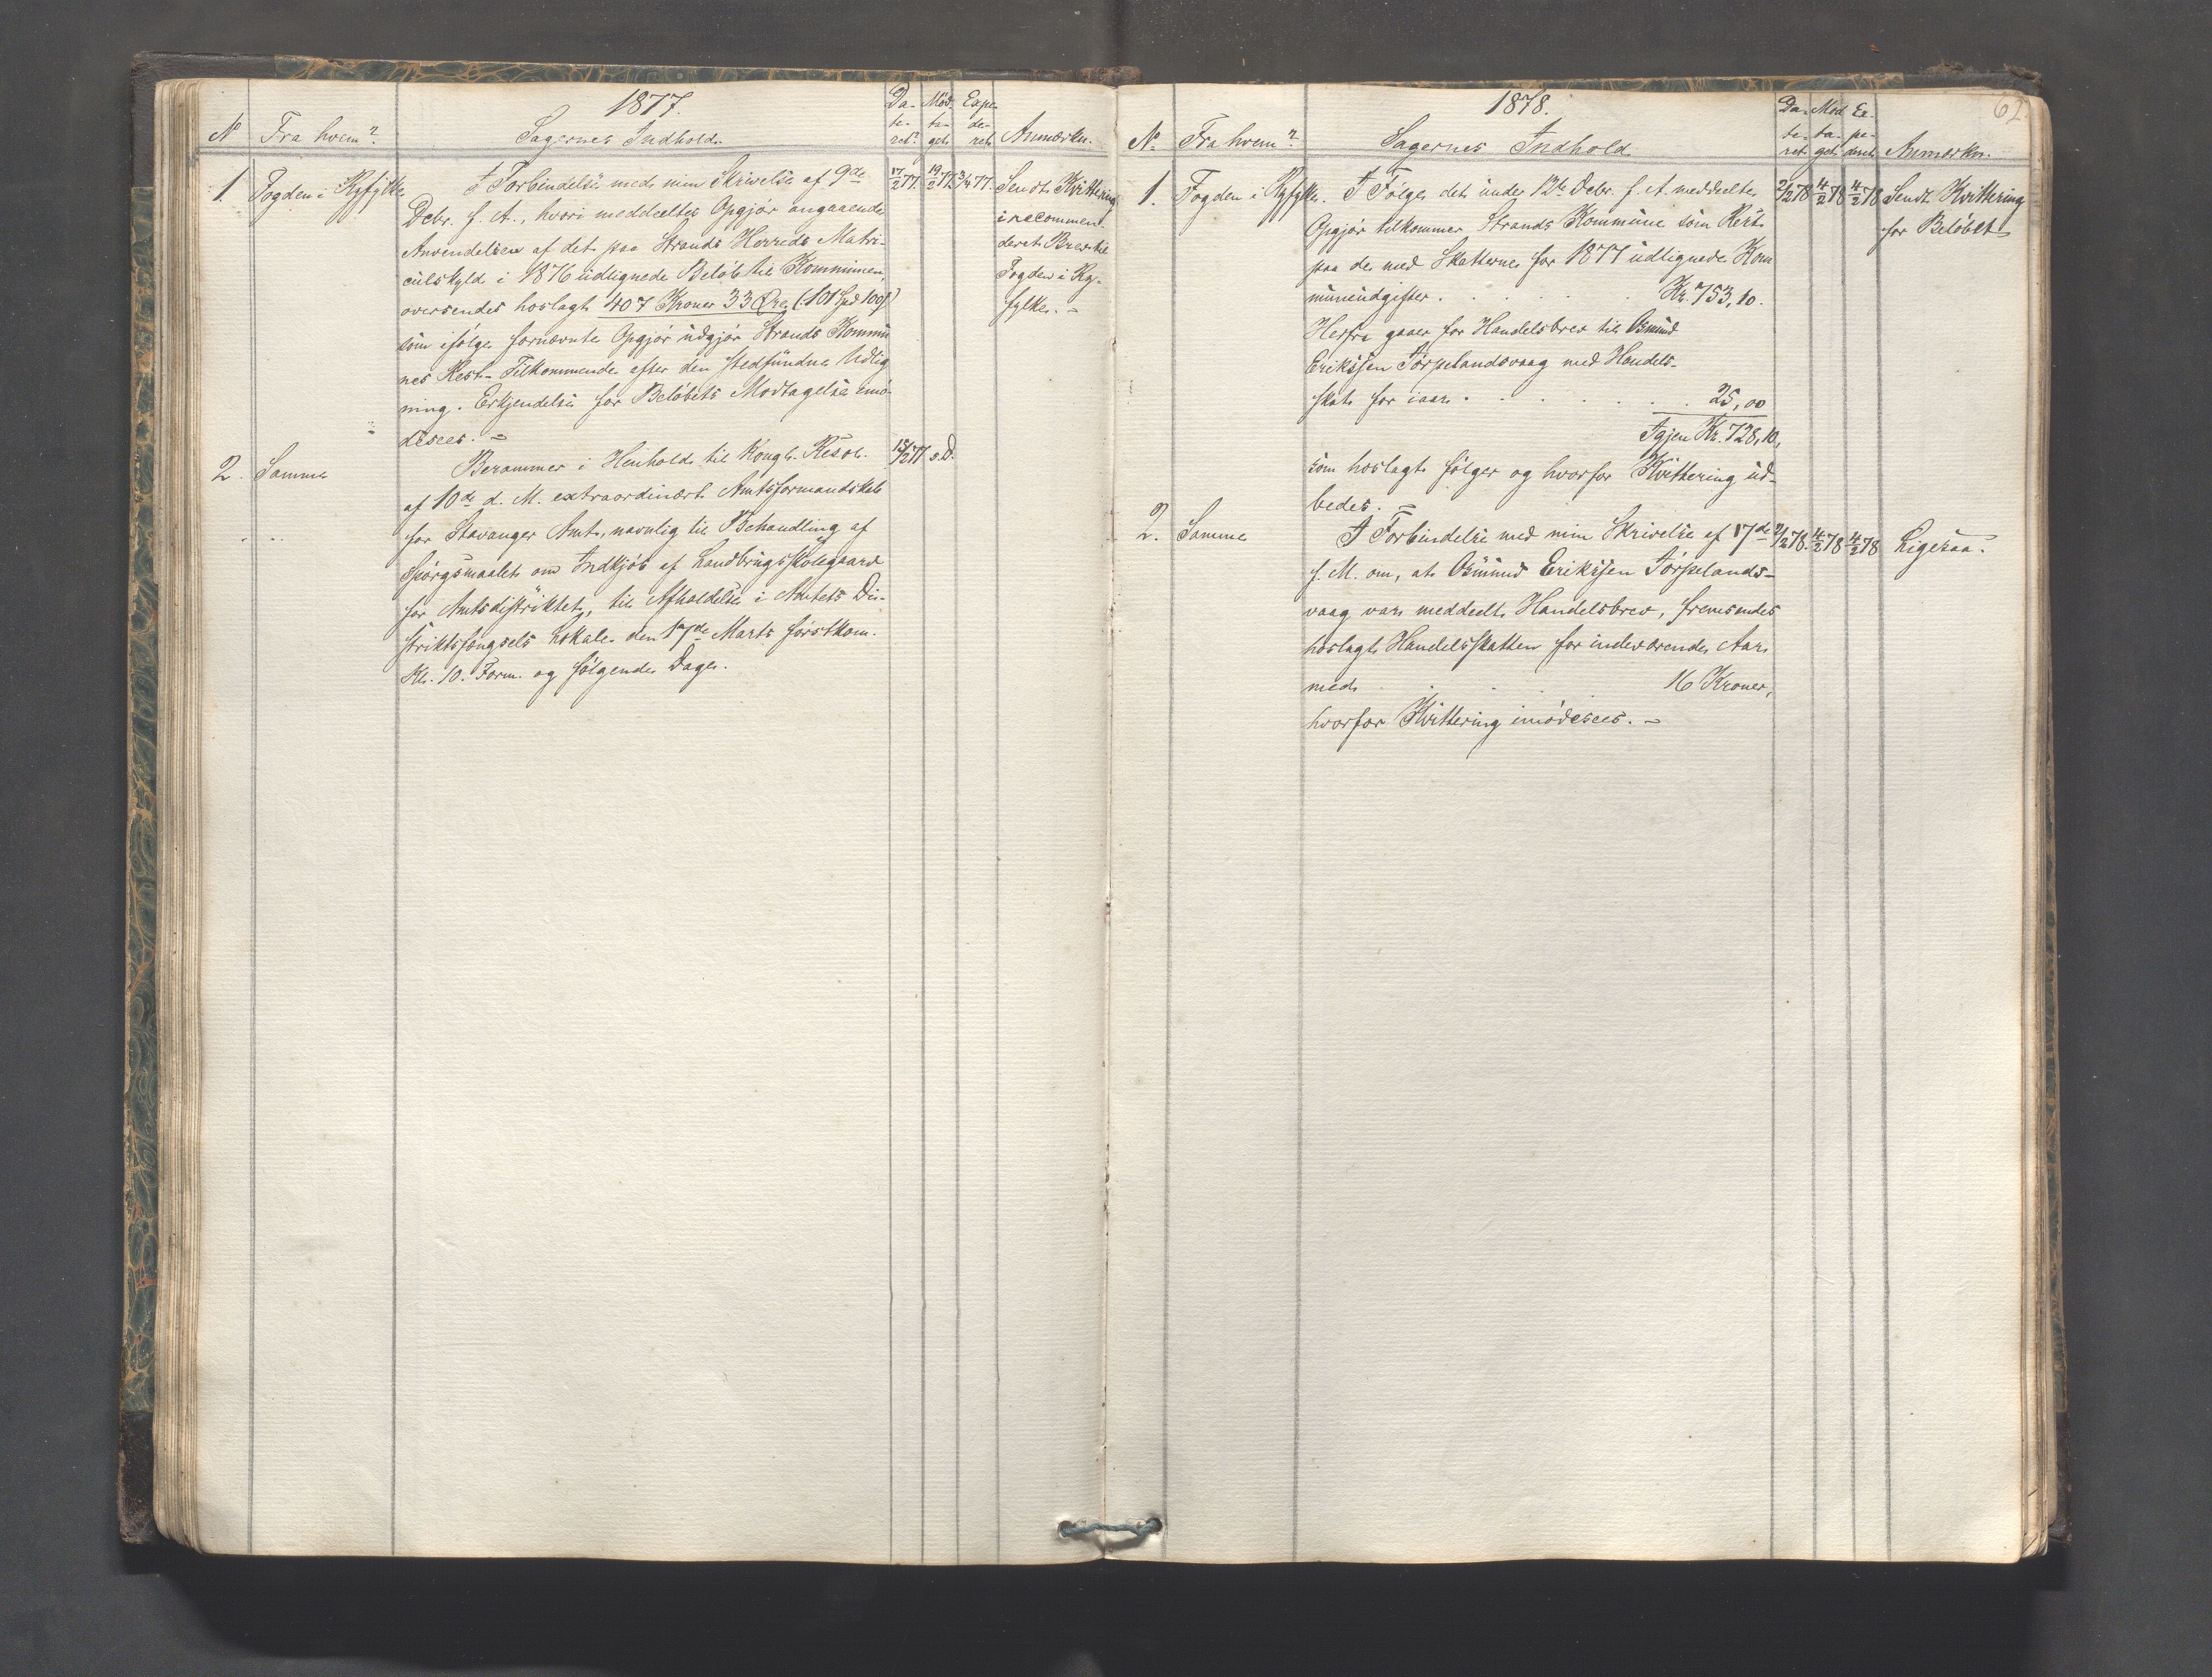 1877.
No Fra hvem? Sagernes Indhold. Dateret? Modtaget Expederet Anmærkn.
1. Fogden i Ryfylke I Forbindelse med min Skrivelse af 9de 17/2 77. 19/2 77. 3/4 77. Sendt Kvittering
Decbr. f. A., hvori meddeeltes Opgjør angaaende i recommen-
Anvendelsen af det paa Strands Herreds Matri- deret Brev til
culskyld i 1876 udlignede Beløb til Kommunen, Fogden i Ry-
oversendes hoslagt 407 Kroner 33 Øre (101 Spd 100 ß) fylke. -
som ifølge fornævnte Opgjør udgjør Strands Kommu
nes Rest-Tilkommende efter den stedfundne Udlig
ning. Erkjendelse for Beløbets Modtagelse imø-
desees. -
2. Samme Berammer i Henhold til Kongl. Resol. 15/2 77 s. D.
af 10de d. M. extraordinært Amtsformandskab
for Stavanger Amt, navnlig til Behandling af
Spørgsmaalet om Indkjøb af Landbrugsskolegaard
for Amtsdistriktet, til Afholdelse i Amtets Di-
striktsfængsels Lokale den 17de Marts førstkom.
Kl. 10. Form. og følgende Dage.
62.
1878.
No. Fra hvem? Sagernes Indhold Dateret Modtaget Expederet Anmærkn.
1. Fogden i Ryfylke. I Følge det under 12te Decbr. f. A. meddeelte 2/2 78 4/2 78 4/2 78 Sendt Kvittering
Opgjør tilkommer Strands Kommune som Rest for Beløbet
paa de med Skatterne for 1877 udlignede Kom
muneudgifter . . . . . Kr. 753,10.
Herfra gaaer for Handelsbrev til Osmund
Erikssen Tørpelandsvaag med Handels-
skat for iaar . . . . . . 25,00
Igjen Kr. 728,10,
som hoslagt følger og hvorfor Kvittering ud-
bedes. -
2. Samme I Forbindelse med min Skrivelse af 17de 2/2 78. 4/2 78 4/2 78 Ligesaa.
f. M. om, at Osmund Erikssen Tørpelands-
vaag var meddeelt Handelsbrev, fremsendes
hoslagt Handelsskatten for indeværende Aar
med . . . . 16 Kroner,
hvorfor Kvittering imødesees. -